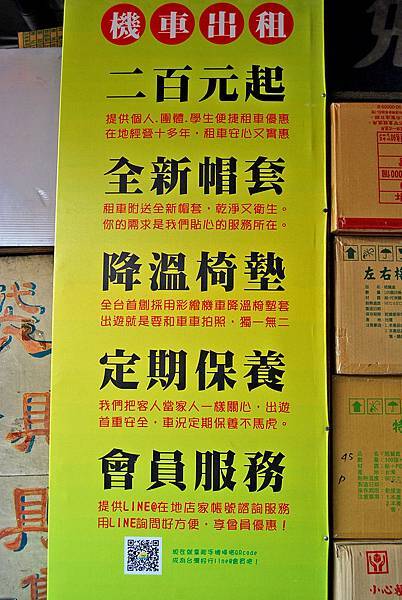 機車出租
二百元起
提供個人.團體.學生便捷租車優惠
在地經營十多年，租車安心又實惠
全新帽套
租車附送全新帽套，乾淨又衛生。
你的需求是我們貼心的服務所在。
降溫椅墊
全台首創採用彩繪機車降溫椅墊套
出遊就是要和車車拍照，獨一無二
定期保養
我們把客人當家人一樣關心，出遊
首重安全，車況定期保養不馬虎。
會員服務
提供LINE@在地店家帳號諮詢服務
用LINE詢問好方便，享會員優惠！
現在就拿起手機掃描QRcode
成為台東好行line@會員吧！
左右
特
45
P
小心
具
具